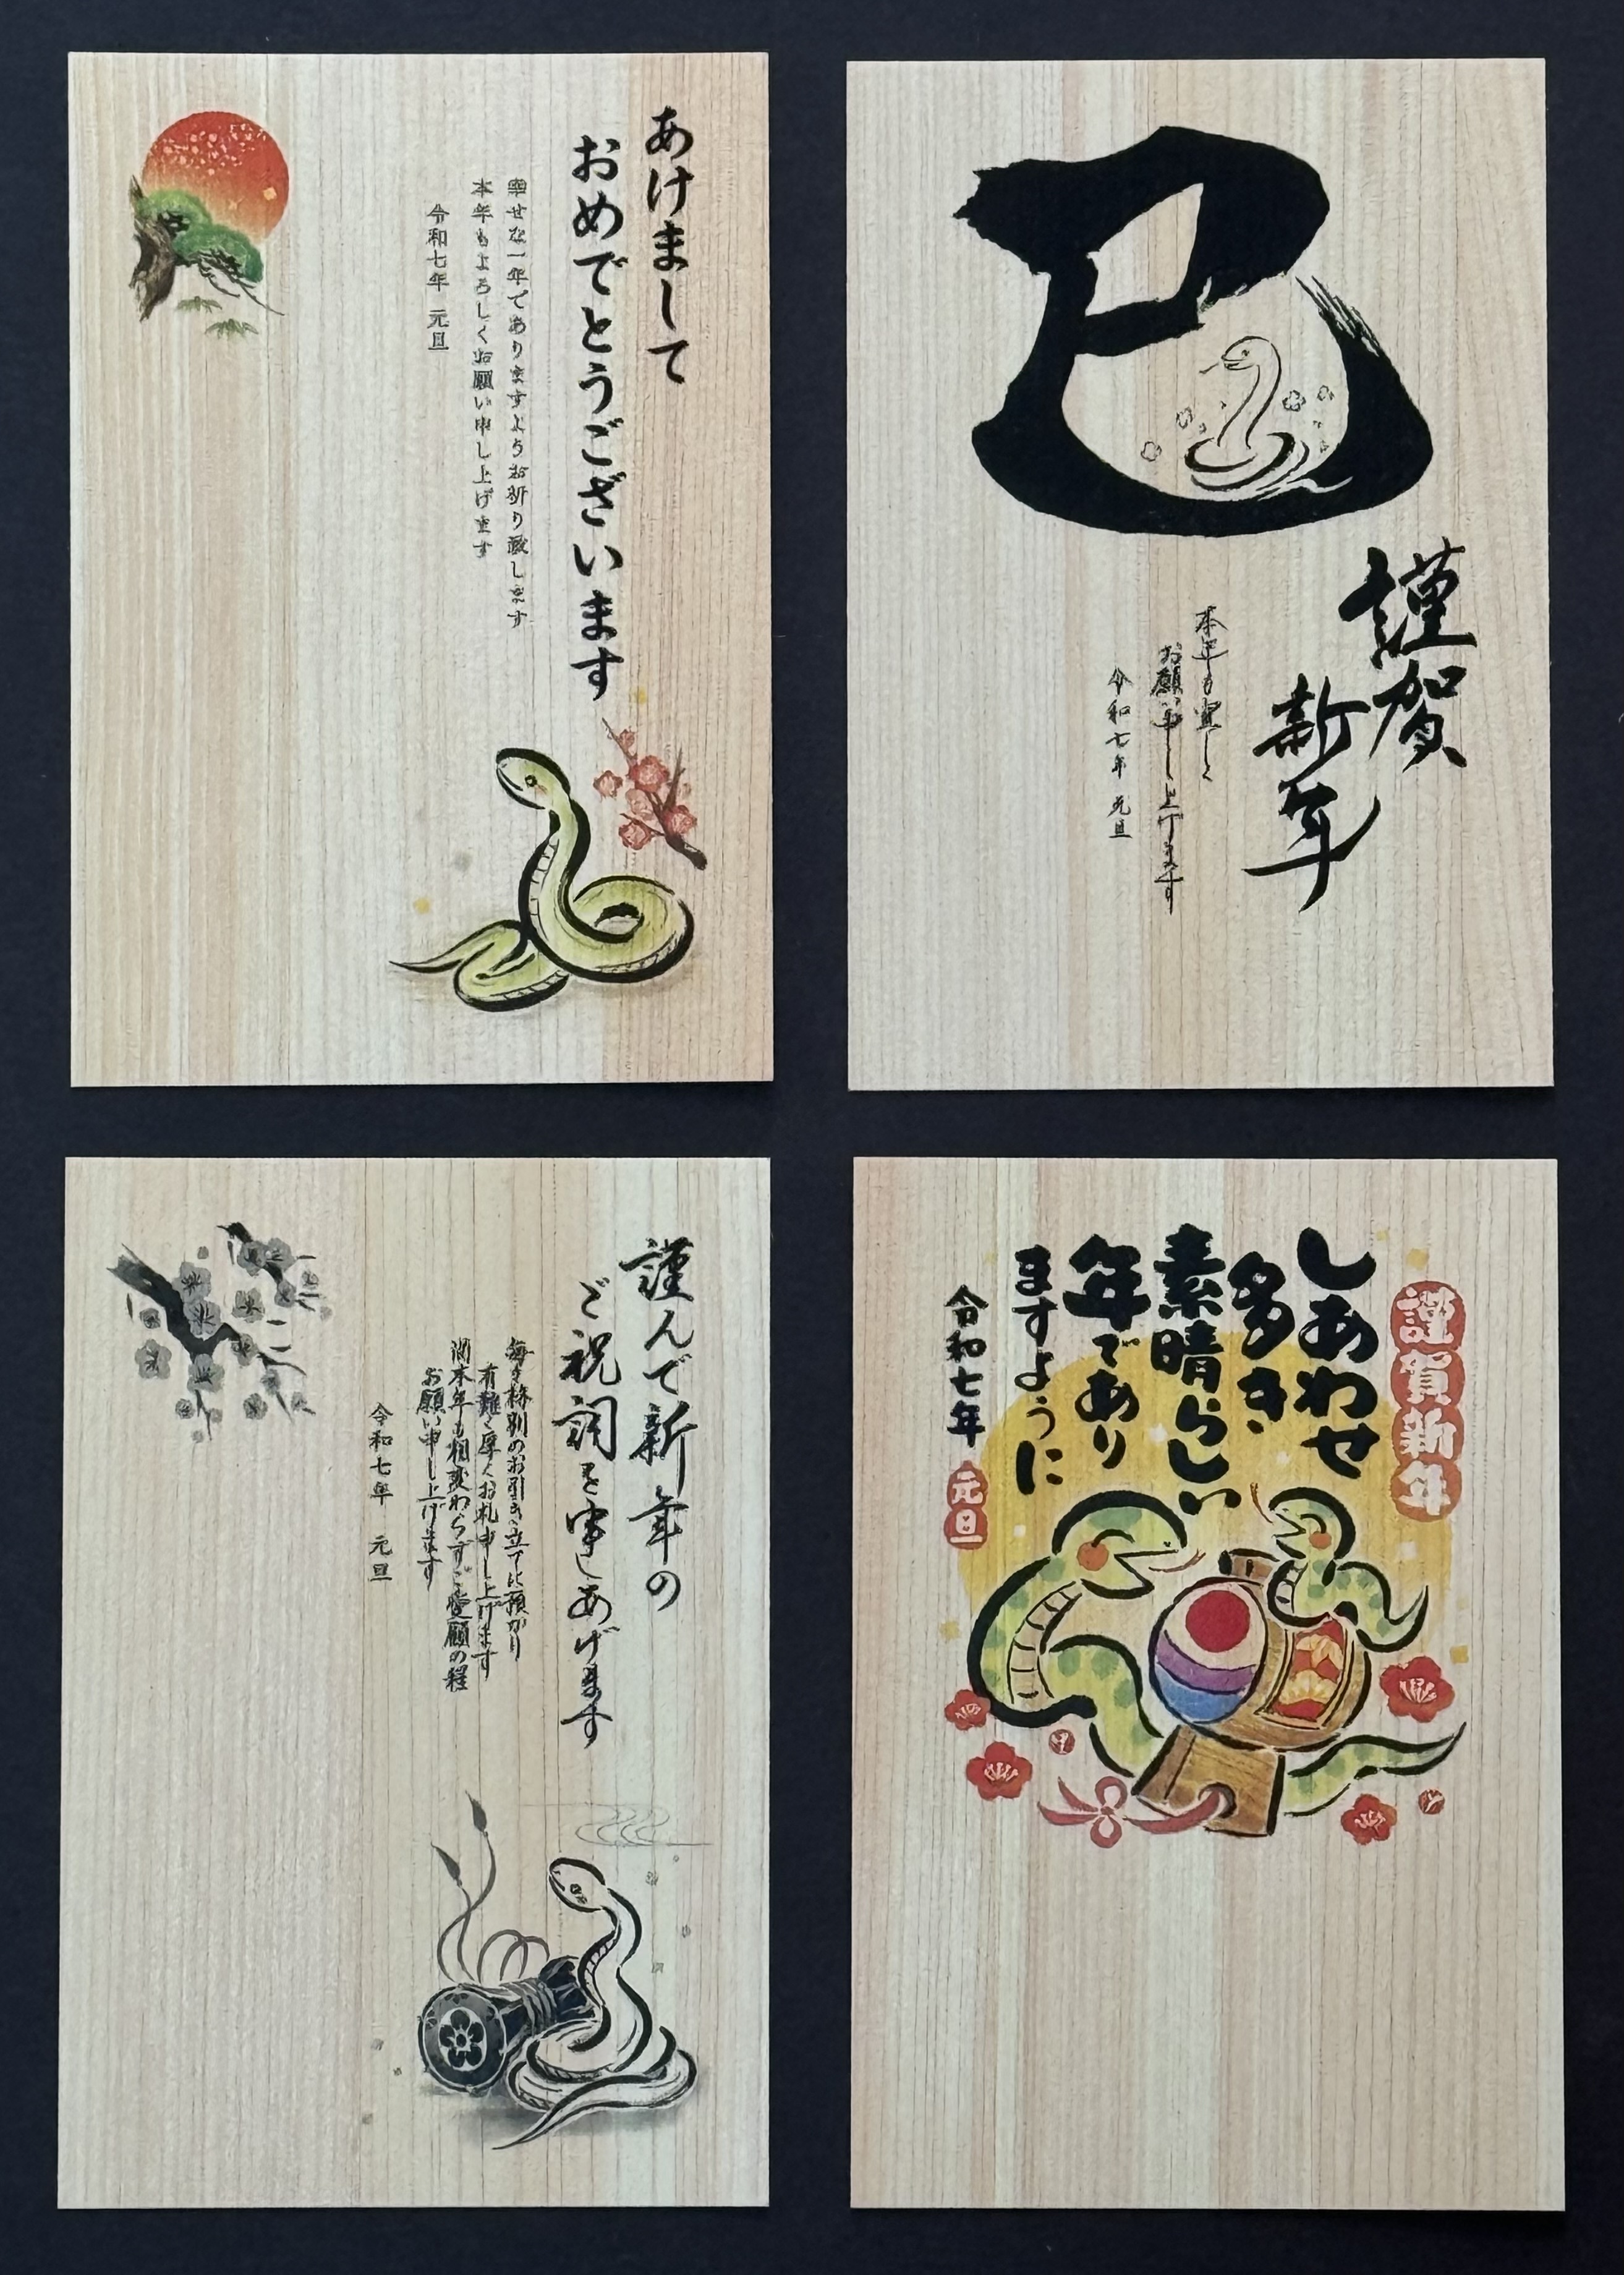 あけまして
おめでとうございます
幸せな一年でありますようお祈り致します
本年もよろしくお願い申し上げます
令和七年 元旦
巳
謹賀
新年
本年も宜しく
お願い申し上げます
令和七年 元旦
謹んで新年の
ご祝詞を申しあげます
毎々格別のお引き立てに預かり
有難く厚くお礼申し上げます
尚本年も相変わらずご愛顧の程
お願い申し上げます
令和七年 元旦
謹賀新年
しあわせ
多き
素晴らしい
年であり
ますように
令和七年 元旦